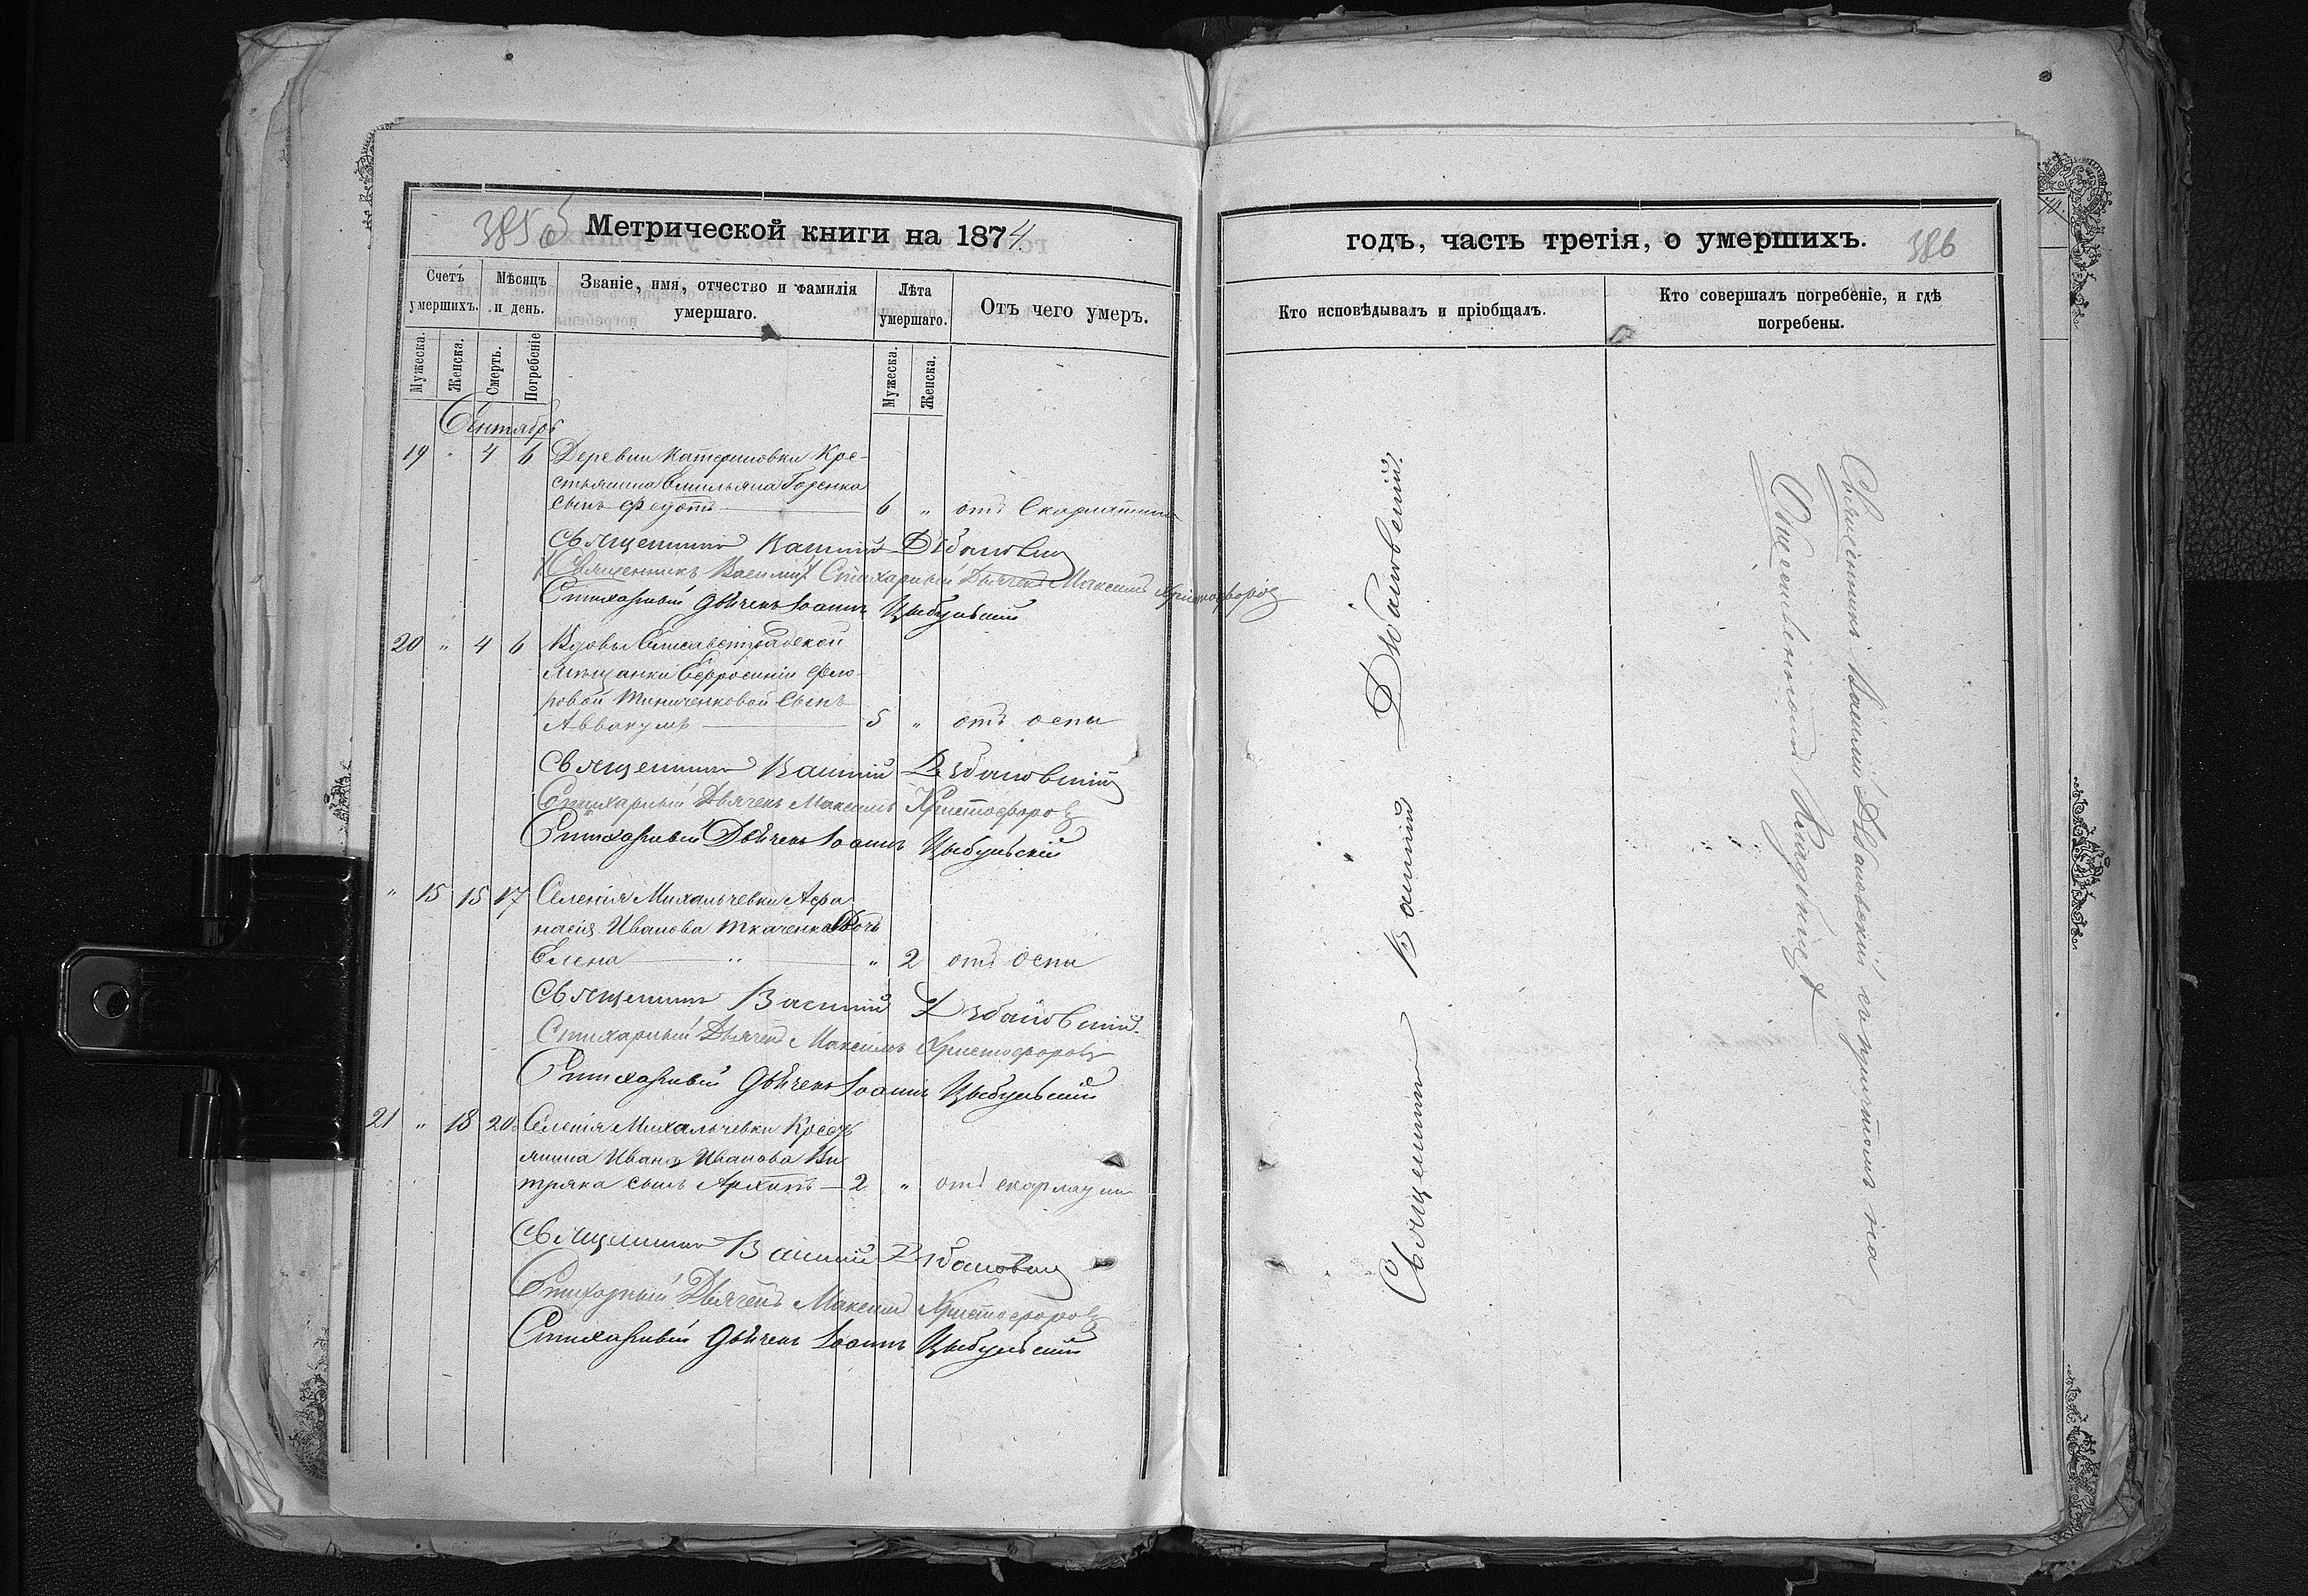 385 об
Метрической книги на 1874.
Счетъ умершихъ.
Мѣсяцъ и день.
Званіе, имя, отчество и фамилія умершаго.
Лѣта умершаго.
Отъ чего умеръ.
Мужеска.
Женска.
Смерть.
Погребеніе
Мужеска.
Женска.
Сентябрь
19 " 4 6 Деревни Катериновки Кре-
стьянина Емильяна Горенка
сынъ Федотъ 6 " отъ Скарлатини
Священникъ Василій Дзбановскій
Священникъ Василій Стихарный Дьячекъ Максимъ Христофоровъ
Стихарный Дьячекъ Іоаннъ Цыбульский
20 " 4 6 Вдовы Елисаветградской
мѣщанки Евфросиніи Фео-
ровой Тиниченковой сынъ
Аввакумъ 5 " отъ оспы
Священникъ Василій Дзбановскій
Стихарный Дьячекъ Максимъ Христофоровъ
Стихарный Дьячекъ Іоаннъ Цыбульскій
" 15 15 17 Селенія Михальчевки Афа-
насія Иванова Ткаченка Дочь
Елена " " 2 отъ оспы
Священникъ Василій Дзбановскій.
Стихарный Дьячекъ Максимъ Христофоровъ
Стихарный Дьячекъ Іоаннъ Цыбульский
21 " 18 20 Селенія Михальчевки Кресть
янина Ивана Иванова Ви
тряка сынъ Архипъ 2 " отъ скарлаціи
Священникъ Василій Дзбановскій
Стихарный Дьячекъ Максимъ Христофоровъ
Стихарный Дьячекъ Іоаннъ Цыбульский
годъ, часть третія, о умершихъ.
386
Кто исповѣдывалъ и пріобщалъ.
Кто совершалъ погребеніе, и гдѣ погребены.
Священникъ Василій Дзбановскій.
Священникъ Василій Дзбановскій съ причтомъ на
Общественномъ Кладбищѣ